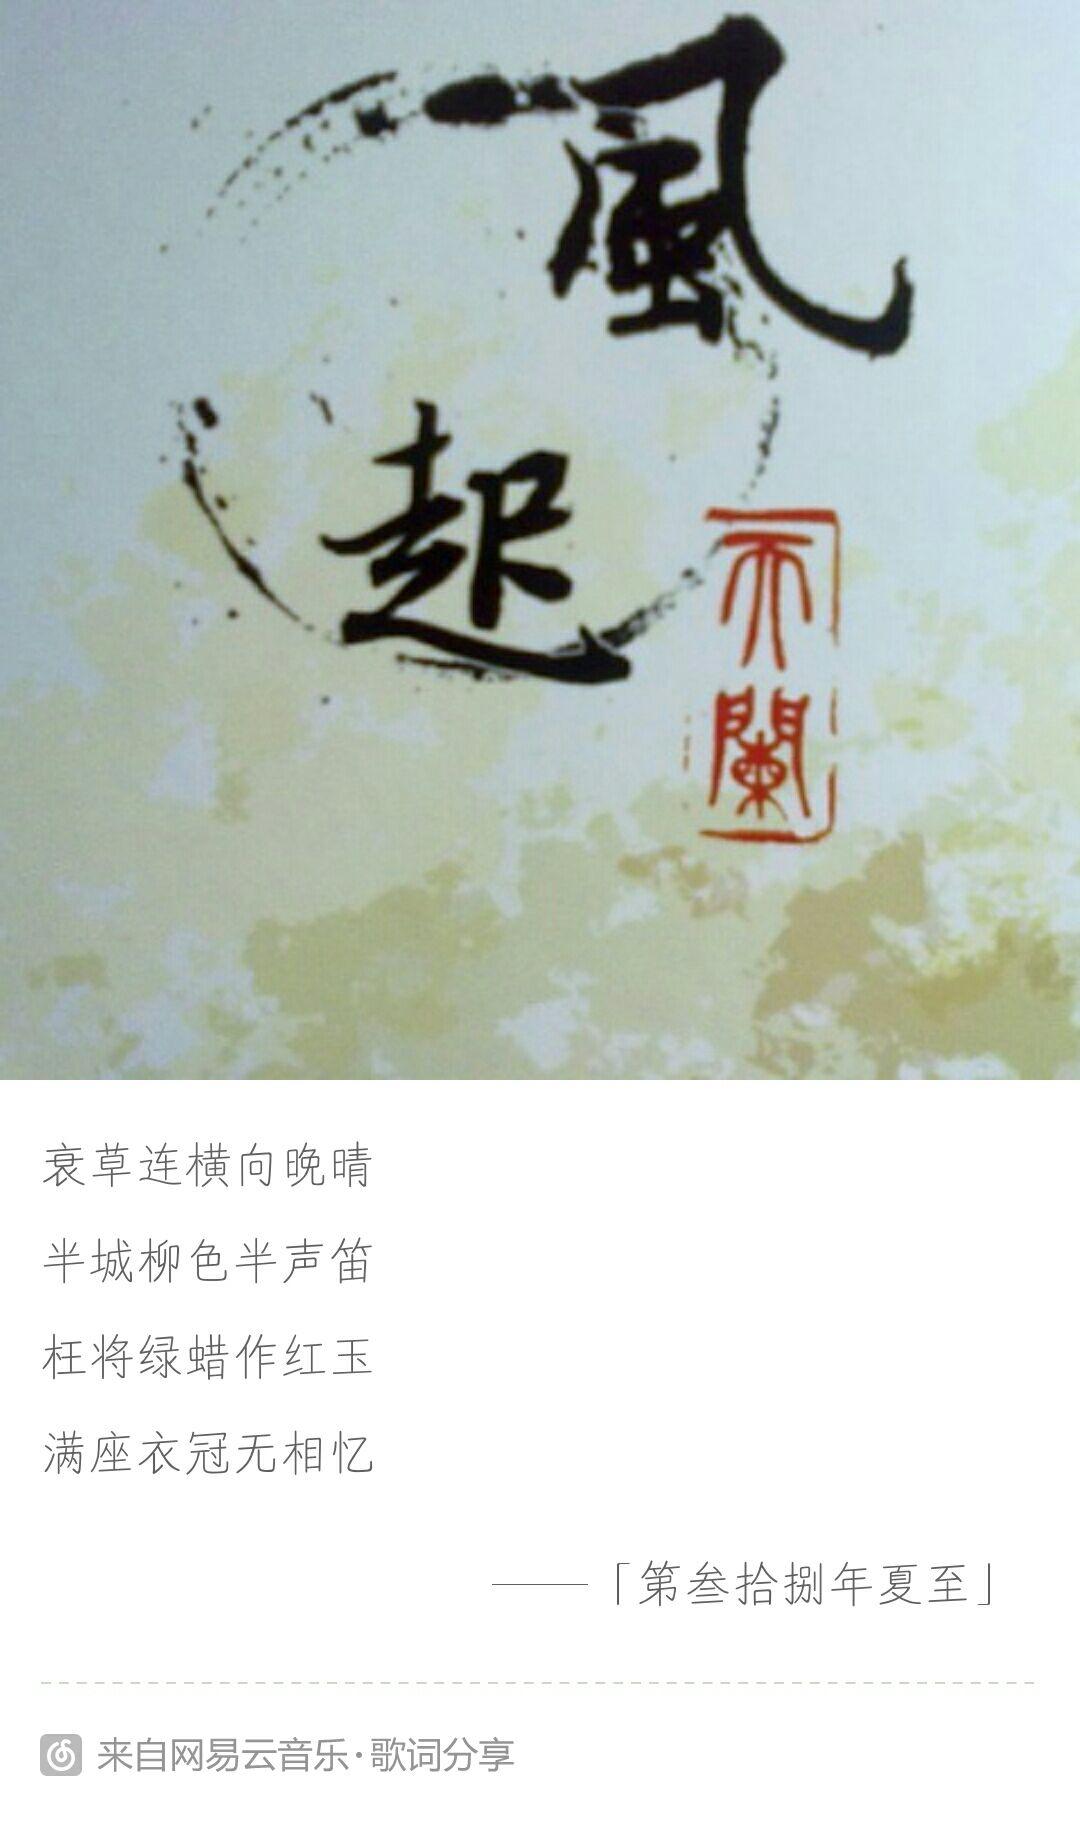 風
起
天闌
衰草连横向晚晴
半城柳色半声笛
枉将绿蜡作红玉
满座衣冠无相忆
——「第叁拾捌年夏至」
来自网易云音乐·歌词分享